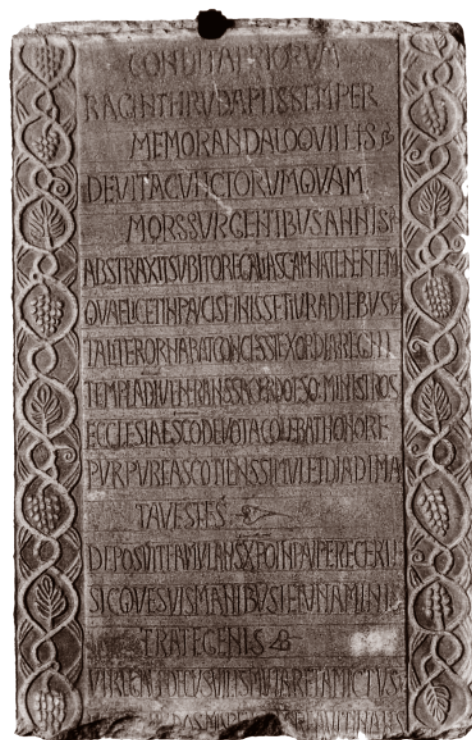 CONDITAPRIORUM
RACINTHRUDAPIISSEMPER
MEMORANDALOQVIILIS
DEVITACVNCTORVMQVAM
MORSSVRGENTIBUSANNIS
ABSTRAXITSUBITOREGALIASCAMNATENENTEM
QVAELICETINPAVCISFINISSETIURADIEBUS
TALITERORNABATCONCESSIEXORDIAREGNI
TEMPLADIVENERANSSACERDOTESO·MINISTROS
ECCLESIAESCODEVOTACOLEBATHONORE
PVRPVREASCOTIENSSIMVLETDIADIMA
TAVESTES
DEPOSVITFAMVLANSXPOINPAVPERE
SICQVESVISMANIBUSIEIVNAMINIS
TRATEGENIS
DECUSVILISMVTARETAMICTVS